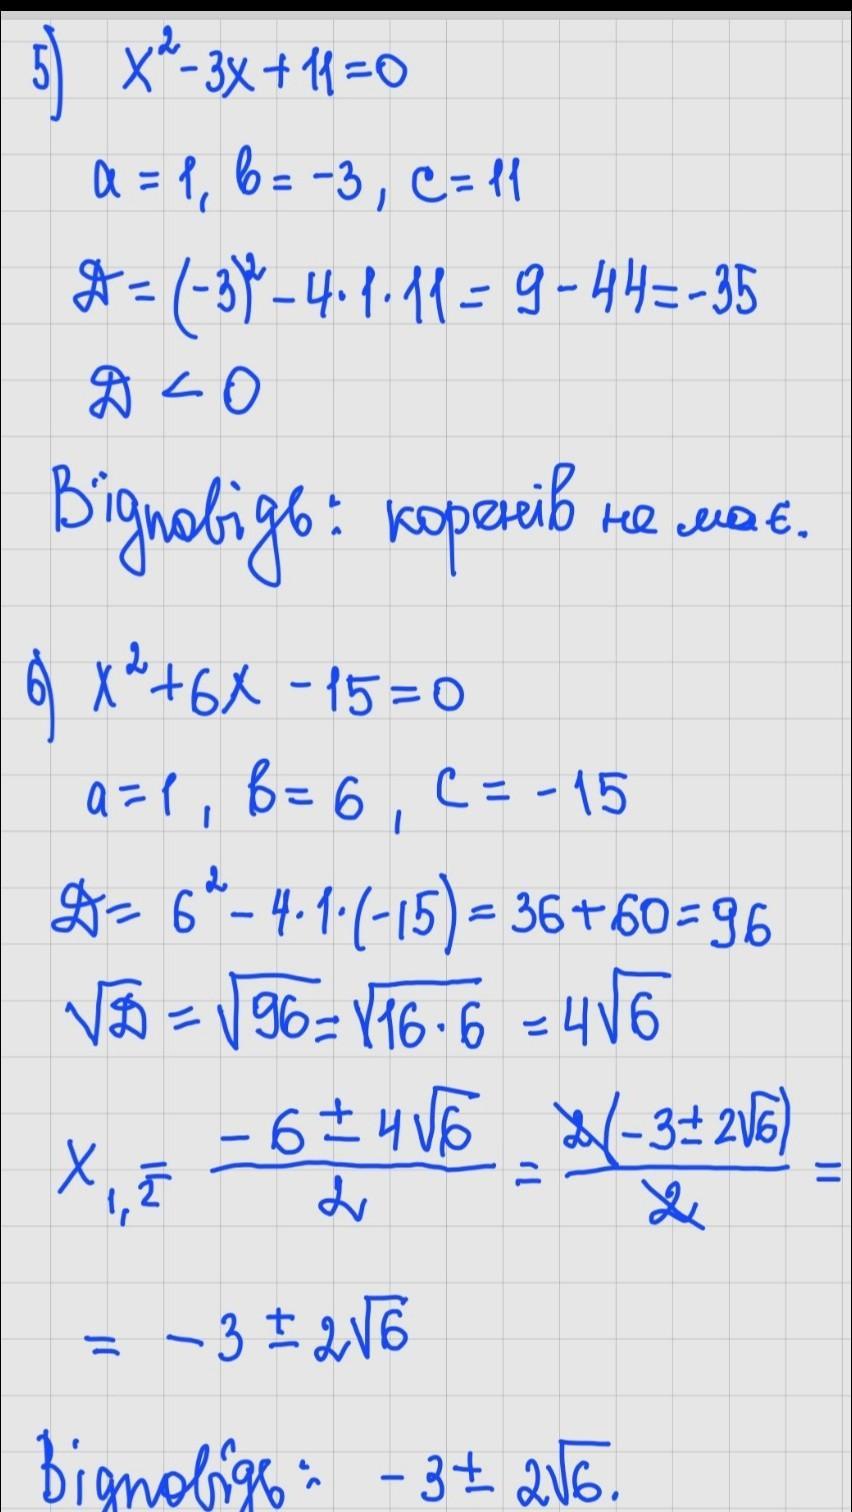 5) x² - 3x + 11 = 0
a = 1, b = -3, c = 11
D = (-3)² - 4 · 1 · 11 = 9 - 44 = -35
D < 0
Відповідь: коренів не має.
6) x² + 6x - 15 = 0
a = 1, b = 6, c = -15
D = 6² - 4 · 1 · (-15) = 36 + 60 = 96
√D = √96 = √16 · 6 = 4√6
x₁,₂ = (-6 ± 4√6)/2 = 2(-3 ± 2√6)/2 =
= -3 ± 2√6
Відповідь: -3 ± 2√6.